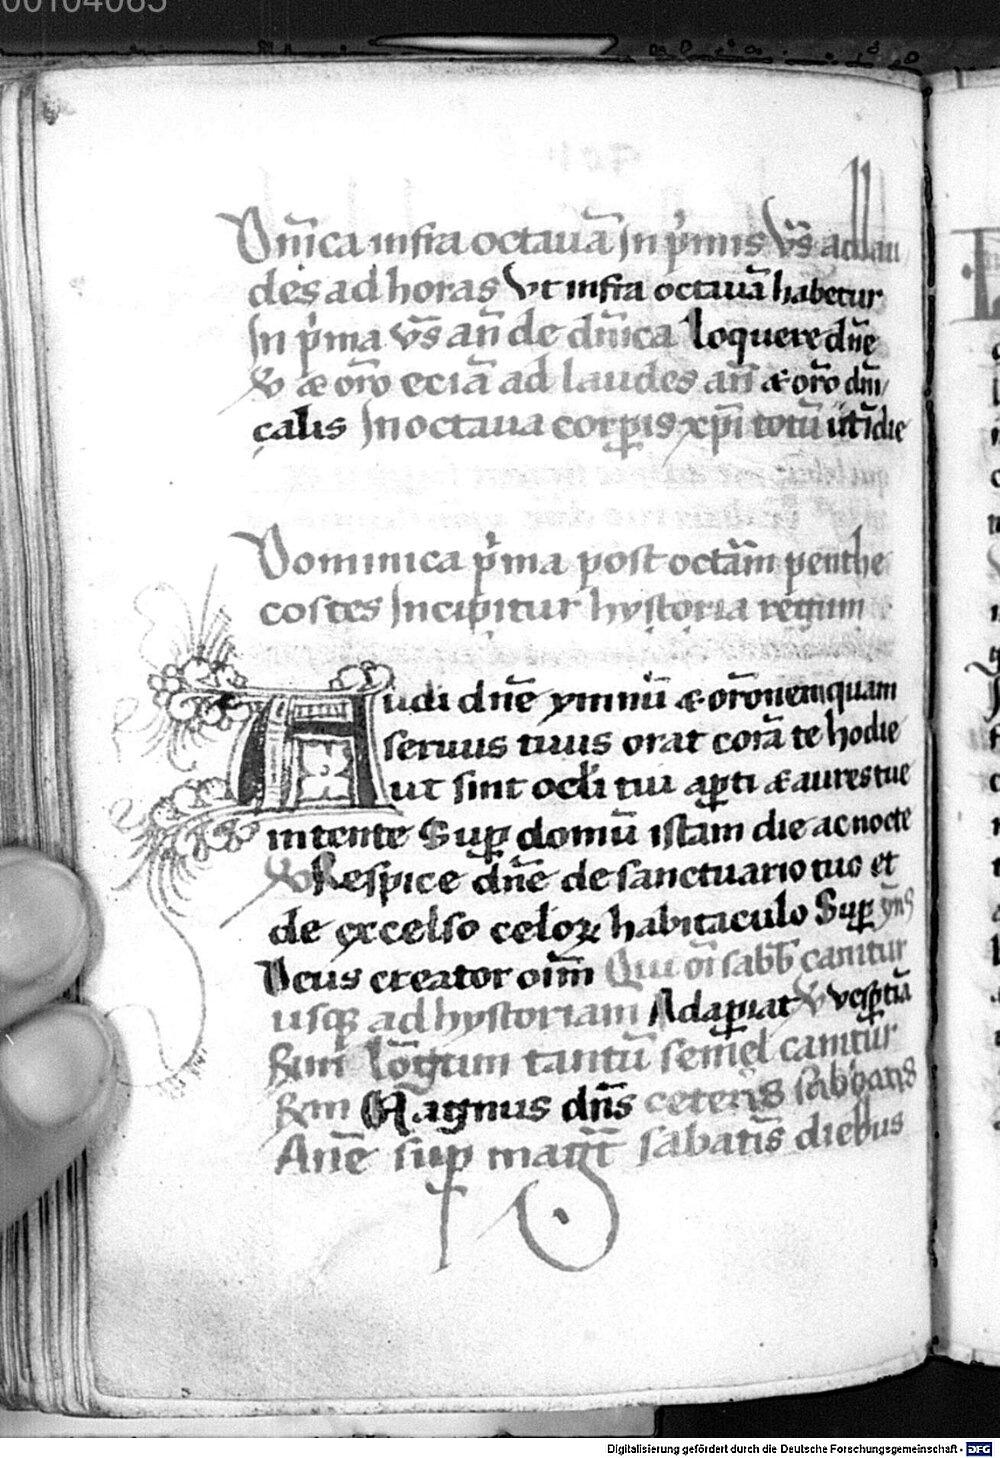 00104065
Dn̄ica infra octauā In p̍mis vs̄ ad lau
des ad horas Vt infra octauā habetur
In p̍ma vs̄ an̄ de dn̄ica loquere dn̄e
& oro eciā ad laudes an̄ & oro dn̄i
calis In octaua corꝑis xp̄i totū
Dominica p̍ma post octām penthe
costes Incipitur hystoria regum
Audi dn̄e ymnū & orōnem quam
seruus tuus orat corā te hodie
ut sint oc̄li tui aꝑti & aures tue
intente Suꝑ domū istam die ac nocte
Respice dn̄e de sanctuario tuo et
de excelso celoꝝ habitaculo Suꝑ ym̄s
Deus creator oīm Qui oī sabb̄ canitur
usqꝫ ad hystoriam Adaꝑiat vesꝑtīa
Rm̄ lōgum tantū semel canitur
Rm̄ Magnus dn̄s ceteris sabbatis
Ane suꝑ magt̄ sabatis diebus
Digitalisierung gefördert durch die Deutsche Forschungsgemeinschaft - DFG